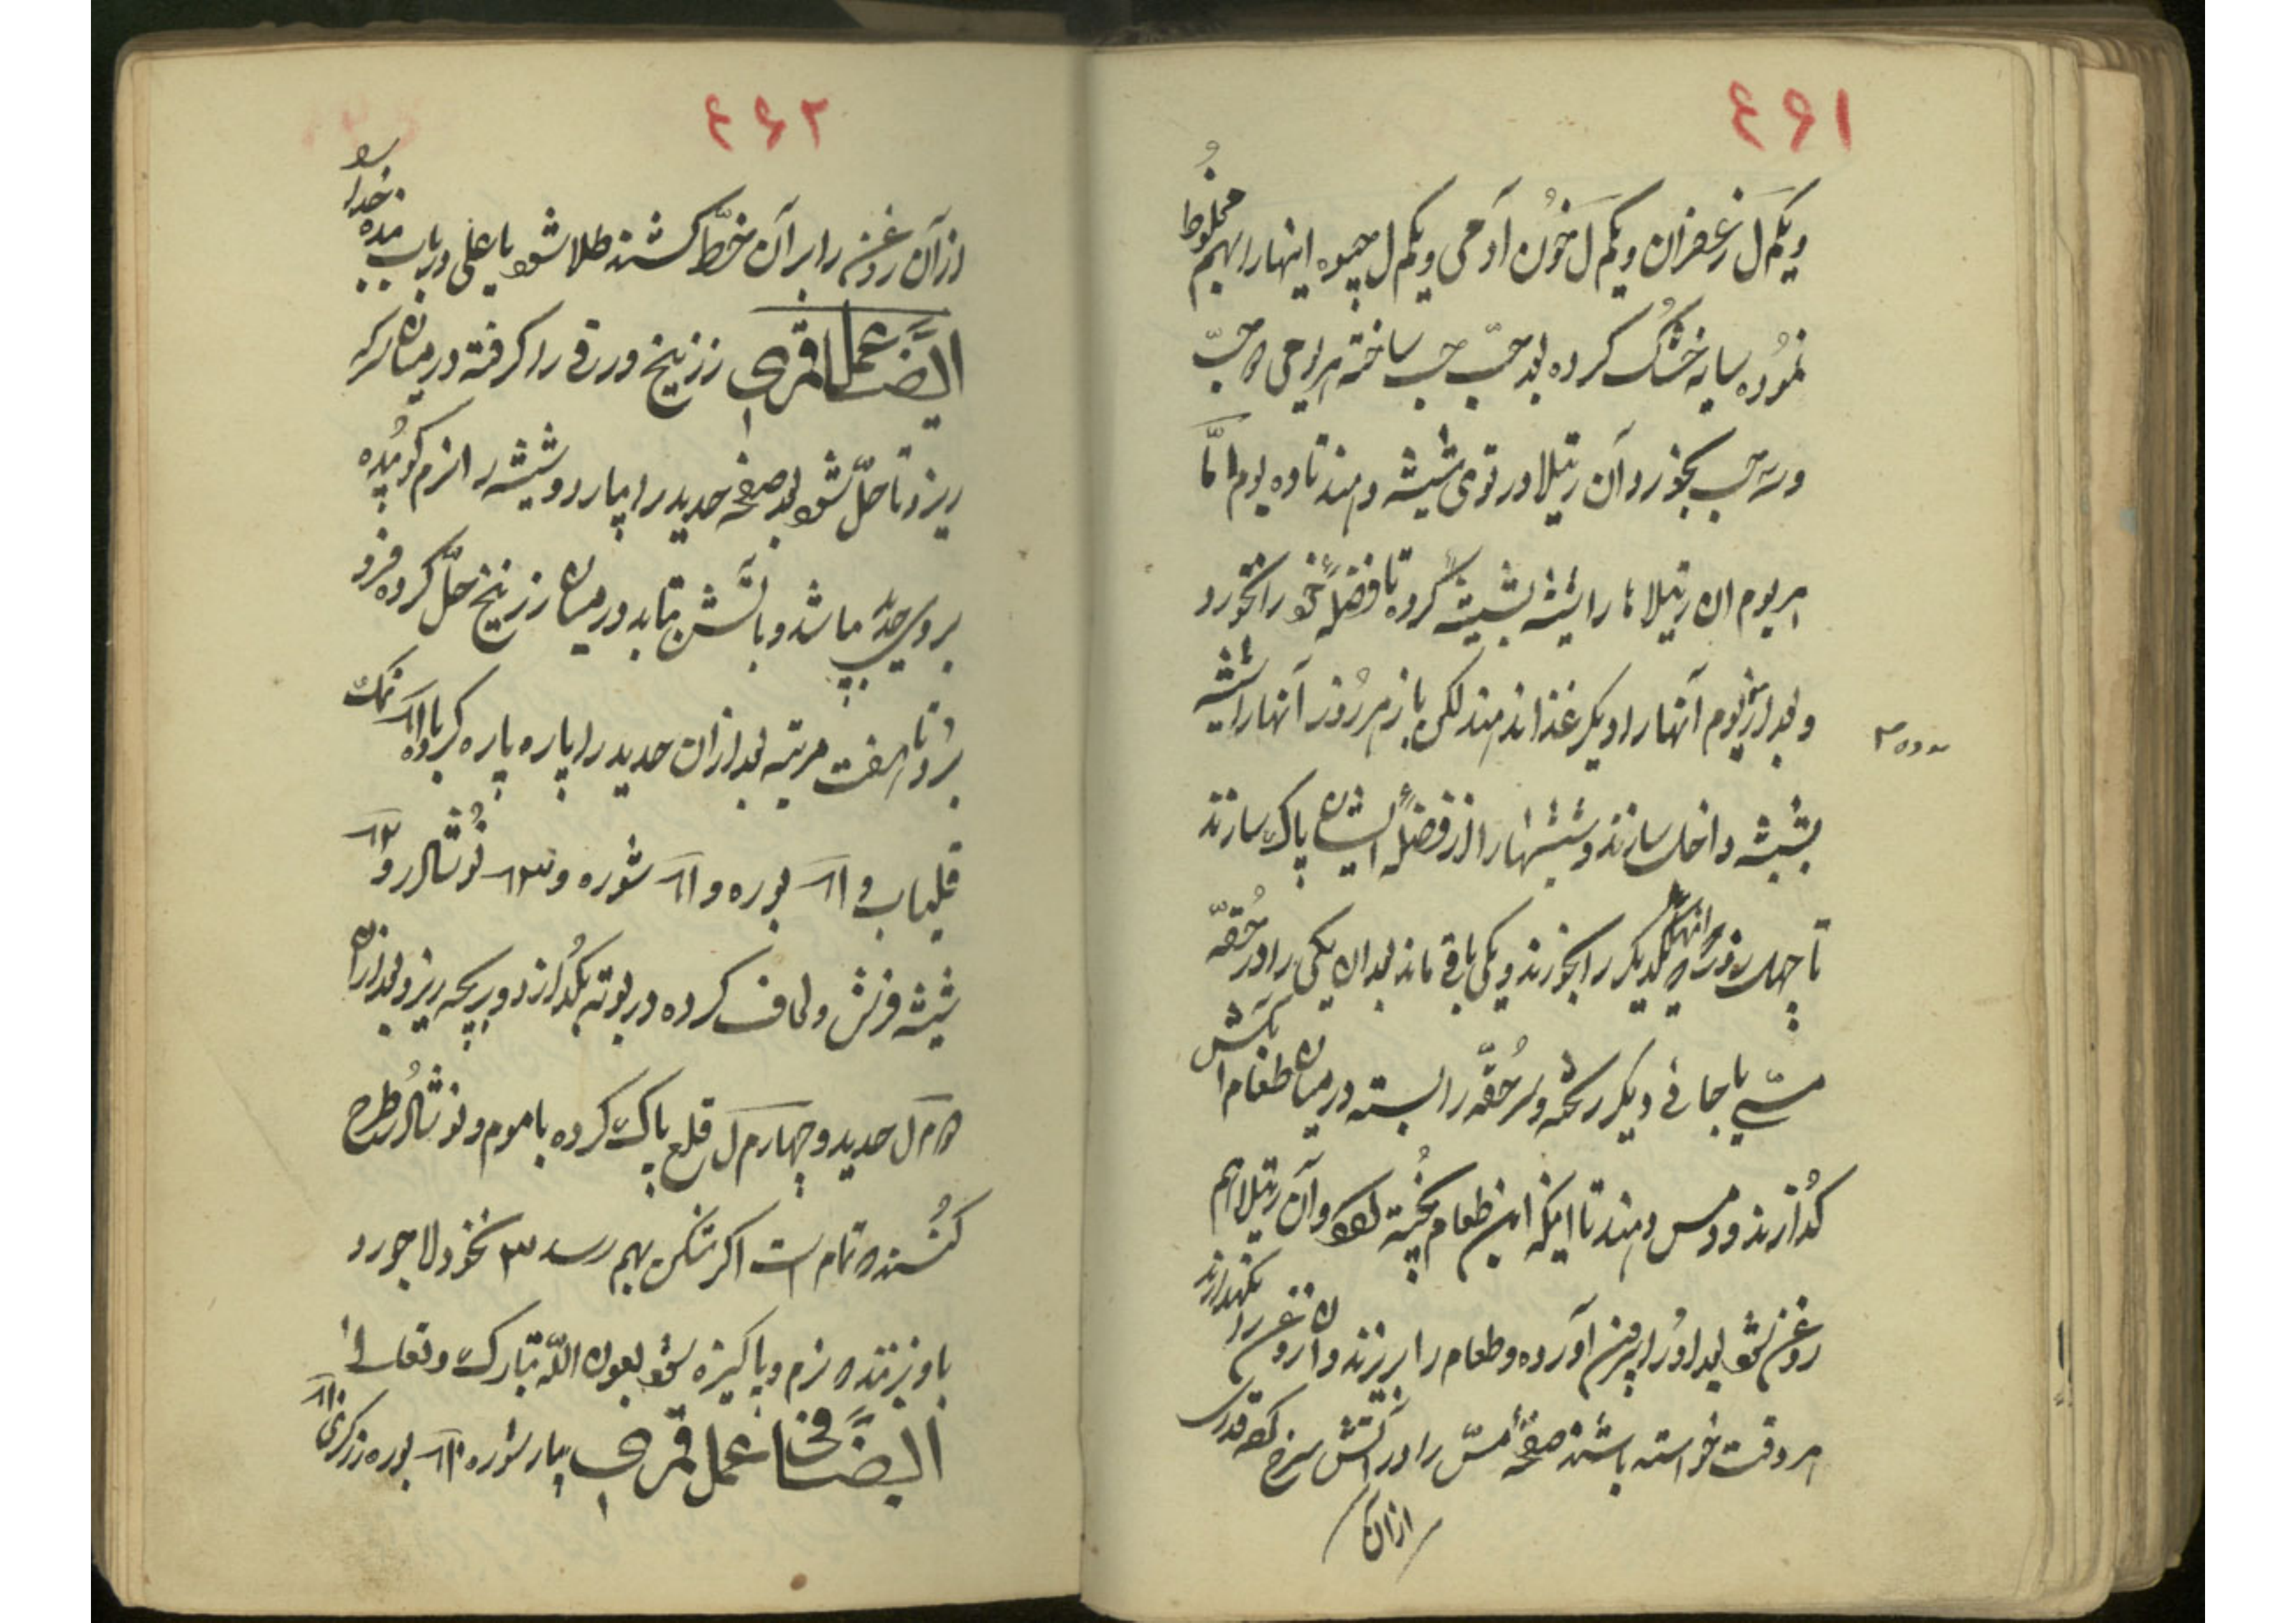 ۴۶۱
ویکم ل زعفران ویکم ل خون آدمی ویکم ل جیوه اینها را بهم مخلوط
نموده سایه خشک کرده بعد حبّ حب ساخته هر یومی ۵ حبّ
ورته حب بخورد آن رتیلا در توی شیشه دهند تا ده یوم امّا
هر یوم ان رتیلاها را شیشه بشیشه کرده تا فضلهٔ خود را نخورد
و بعد از یوم آنها را دیکر غذا ندهند لکن باز هر روز آنها را شیشه
بشیشه داخل سازند و شیشها را از فضلهٔ ایشان پاک سازند
تا چهل روز که انها یکدیکر را بخورند و یکی باقی ماند بعد ان یکی را در حقّه
مسّی یا جائی دیکر ریخته و سر حقّه را بسته در میان طعام اتش
کذارند و دمس دهند تا اینکه این طعام پخته شود و آن رتیلا هم
روغن شود بعد اورا بیرون آورده و طعام را بریزند و ان روغن را نکهدارند
هر وقت خواسته باشند صفحهٔ مسّ را در آتش سرخ که قدری
ازان
۴۶۲
ازآن روغن را بر آن خطّ کشند طلا شود یا علی دریاب بنده خدا را
ایضاً عمل قمری زرنیخ ورقی را کرفته در میان سرکه
ریزد تا حلّ شود بعد صفحه حدید را بیارد و شیشه را نرم کوبیده
بروی حدید باشد و باتش بتابد در میان زرنیخ حلّ کرده فرو
برد تا هفت مرتبه بعد ازان حدید را پاره پاره کرده با ۱۱ نمک
قلیاب و ۱۱ بوره و ۱۱ شوره و ۱۳ نوشادر و ۱۲
شیشه فرش و لحاف کرده در بوته بکدازد و بریجه ریزد بعد ازان
۵ م ل حدید و چهار م ل قلع پاک کرده با موم و نوشادر طرح
کنند ۵ تمام است اکر تنکی بهم رسد ۳ نخود لاجورد
باو زنند ۵ نرم و پاکیزه شود بعون اللّه تبارک و تعالی
ایضاً فی عمل قمری بیار شوره ۱۱ بوره زرکری ۱۱